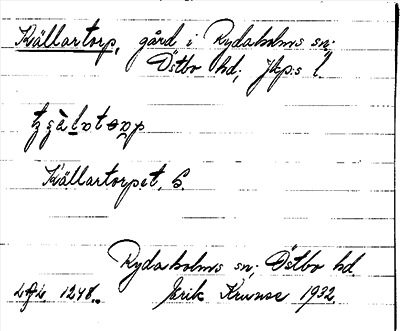 Källartorp, gård i Rydaholms sn;
Östbo hd; Jkp:s l.
Källartorpet, S.
Rydaholms sn; Östbo hd.
LAL 1248. Erik Kruuse 1932.